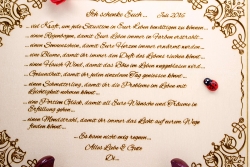 Ich schenke Euch... Juli 2016
...viel Kraft, um jede Situation Eures Lebens bewältigen zu können...
...einen Regenbogen, damit Euer Leben immer in Farben erstrahlt...
...einen Sonnenschein, damit Eure Herzen immer erwärmt werden...
...eine Blume, damit Ihr immer den Duft des Lebens riechen könnt...
...einen Hauch Wind, damit das Böse im Leben weggeblasen wird...
...Gesundheit, damit Ihr jeden einzelnen Tag geniessen könnt...
...einen Schmetterling, damit Ihr die Probleme im Leben mit
Leichtigkeit nehmen könnt...
...eine Portion Glück, damit all Eure Wünsche und Träume in
Erfüllung gehen...
...einen Mondstrahl, damit Ihr immer das Licht auf Eurem Wege
finden könnt...
Es kann nicht nie regnen...
Alles Liebe & Gute